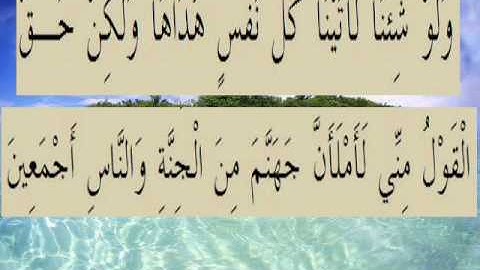 وَلَوْ شِئْنَا لَآتَيْنَا كُلَّ نَفْسٍ هُدَاهَا وَلَٰكِنْ حَـــقَّ
الْقَوْلُ مِنِّي لَأَمْلَأَنَّ جَهَنَّمَ مِنَ الْجِنَّةِ وَالنَّاسِ أَجْمَعِينَ